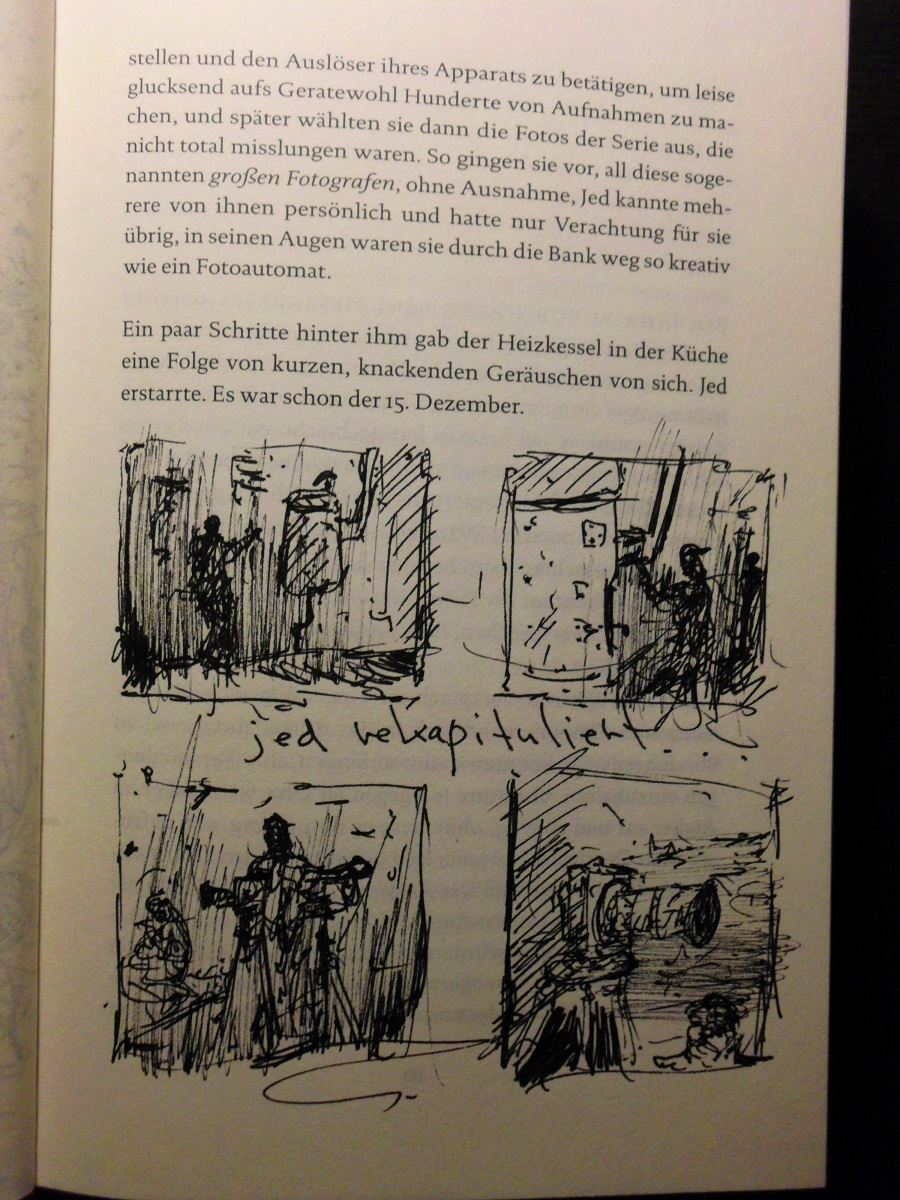 stellen und den Auslöser ihres Apparats zu betätigen, um leise
glucksend aufs Geratewohl Hunderte von Aufnahmen zu ma-
chen, und später wählten sie dann die Fotos der Serie aus, die
nicht total misslungen waren. So gingen sie vor, all diese soge-
nannten großen Fotografen, ohne Ausnahme, Jed kannte meh-
rere von ihnen persönlich und hatte nur Verachtung für sie
übrig, in seinen Augen waren sie durch die Bank weg so kreativ
wie ein Fotoautomat.
Ein paar Schritte hinter ihm gab der Heizkessel in der Küche
eine Folge von kurzen, knackenden Geräuschen von sich. Jed
erstarrte. Es war schon der 15. Dezember.
jed